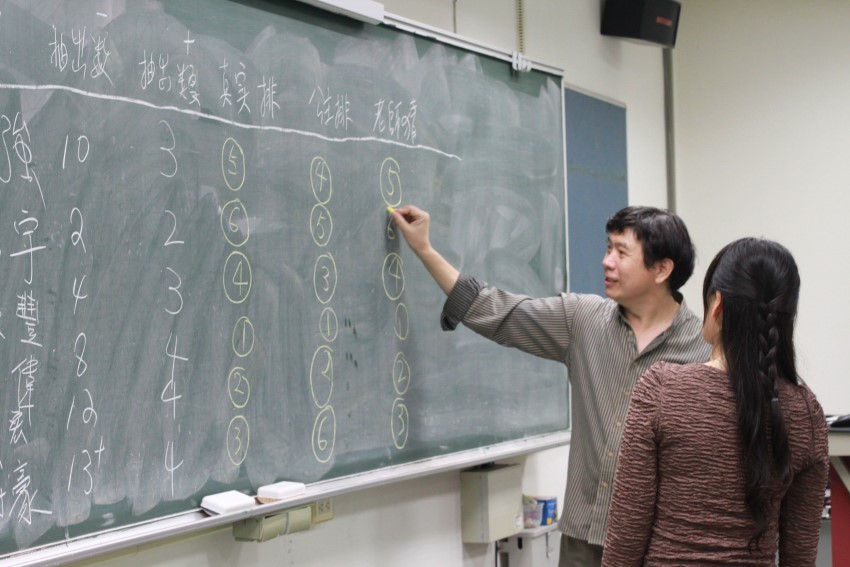 一 十
抽出數 抽出數 真實排 公主排 老師猜
強 10 3 ⑤ ④ ⑤
宇 2 2 ⑥ ⑤ 6
豐 4 3 ④ ③ ④
偉 8 4 ① ① ①
12 4 ② ② ②
豪 13+ 4 ③ ⑥ ③